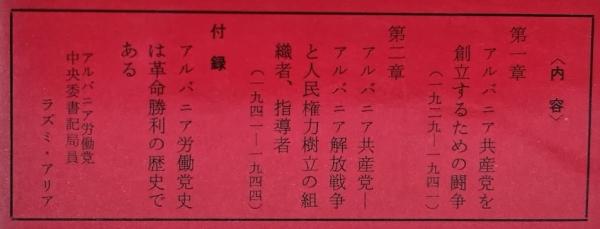 〈内容〉
第一章
アルバニア共産党を
創立するための闘争
（一九二九―一九四一）
第二章
アルバニア共産党―
アルバニア解放戦争
と人民権力樹立の組
織者、指導者
（一九四一―一九四四）
付録
アルバニア労働党史
は革命勝利の歴史で
ある
アルバニア労働党
中央委書記局員
ラズミ・アリア